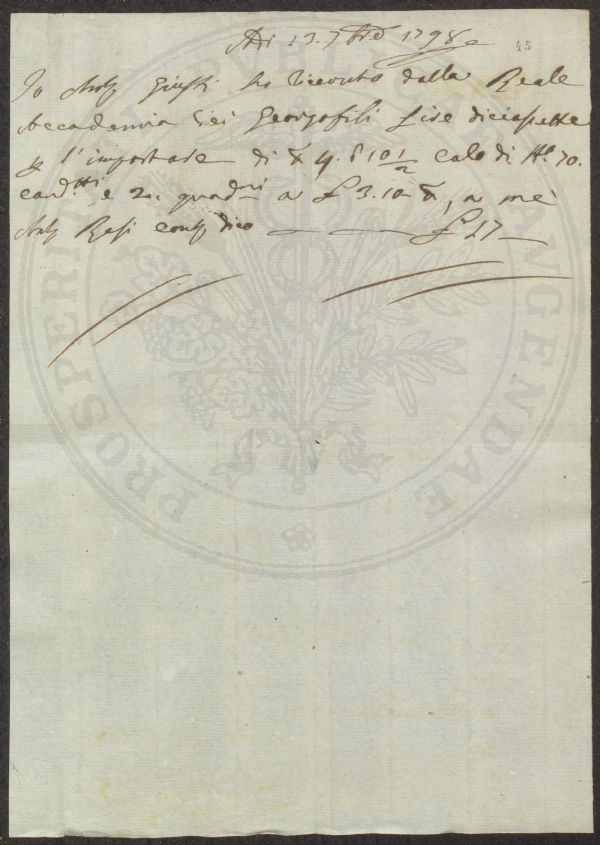 Adi 13. 7bre 1798
45
Io Anto Giusti ho riceuto dalla Reale
Accademia dei Georgofili Lire diciasette
p l'importare di 4. 8 10 1/2 calo di No. 70.
cand.tti e 20. quad.ni a £ 3.10, a me
Anto Rasi dico £ 17
PROSPERITATI PUBLICAE AUGENDAE